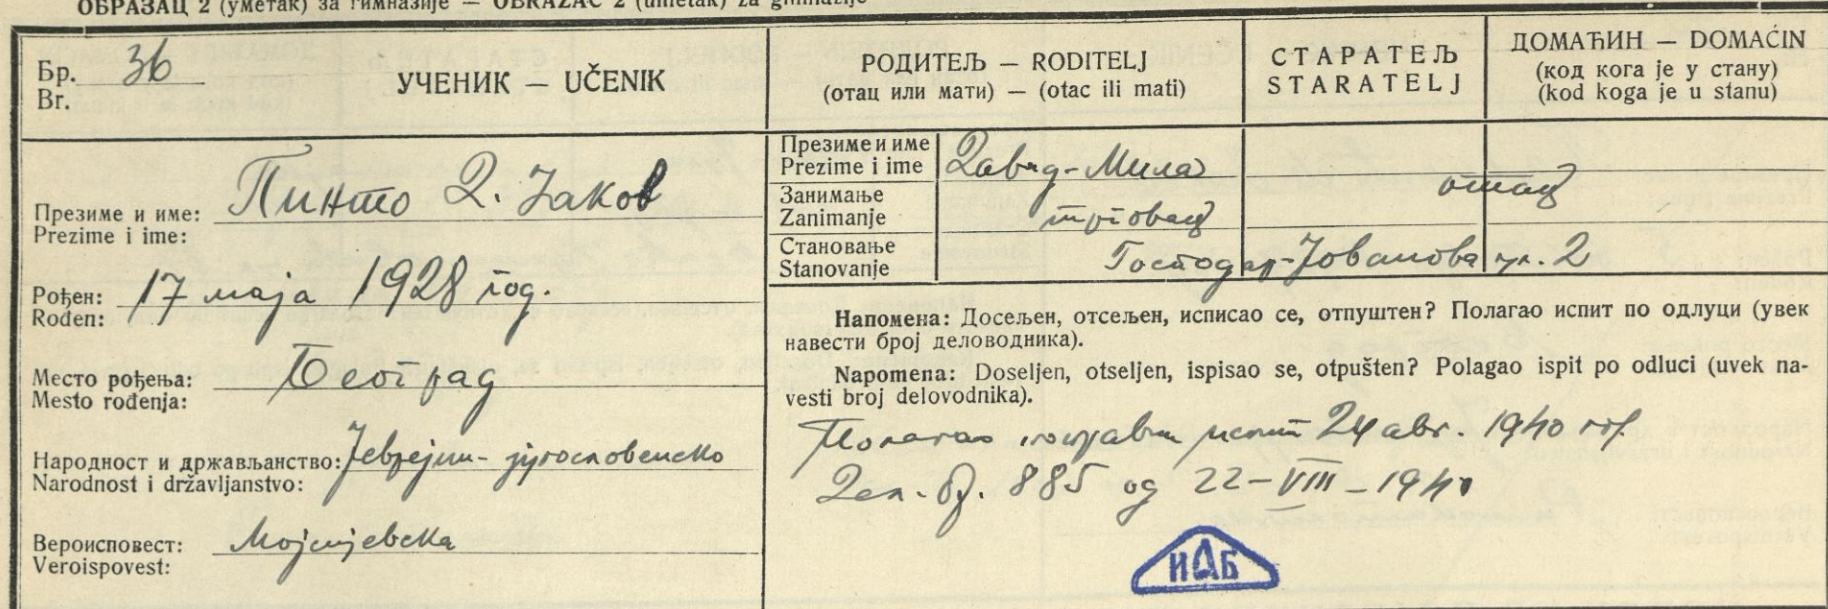 ОБРАЗАЦ 2 (уметак) за гимназије — OBRAZAC 2 (umetak) za gimnazije
Бр. 36
Br.
УЧЕНИК — UČENIK
РОДИТЕЉ — RODITELJ
(отац или мати) — (otac ili mati)
СТАРАТЕЉ
STARATELJ
ДОМАЋИН — DOMAĆIN
(код кога је у стану)
(kod koga je u stanu)
Презиме и име: Пинто Д. Јаков
Prezime i ime:
Рођен: 17 маја 1928 год.
Rođen:
Место рођења: Београд
Mesto rođenja:
Народност и држављанство: Јеврејин - југословенско
Narodnost i državljanstvo:
Вероисповест: Мојсијевска
Veroispovest:
Презиме и име Давид-Мила
Prezime i ime
отац
Занимање
Zanimanje трговац
Становање
Stanovanje Господар-Јованова ул. 2
Напомена: Досељен, отсељен, исписао се, отпуштен? Полагао испит по одлуци (увек
навести број деловодника).
Napomena: Doseljen, otseljen, ispisao se, otpušten? Polagao ispit po odluci (uvek na-
vesti broj delovodnika).
Полагао поправни испит 24 авг. 1940 год.
Дел. бр. 885 од 22-VIII-1940
ИАБ